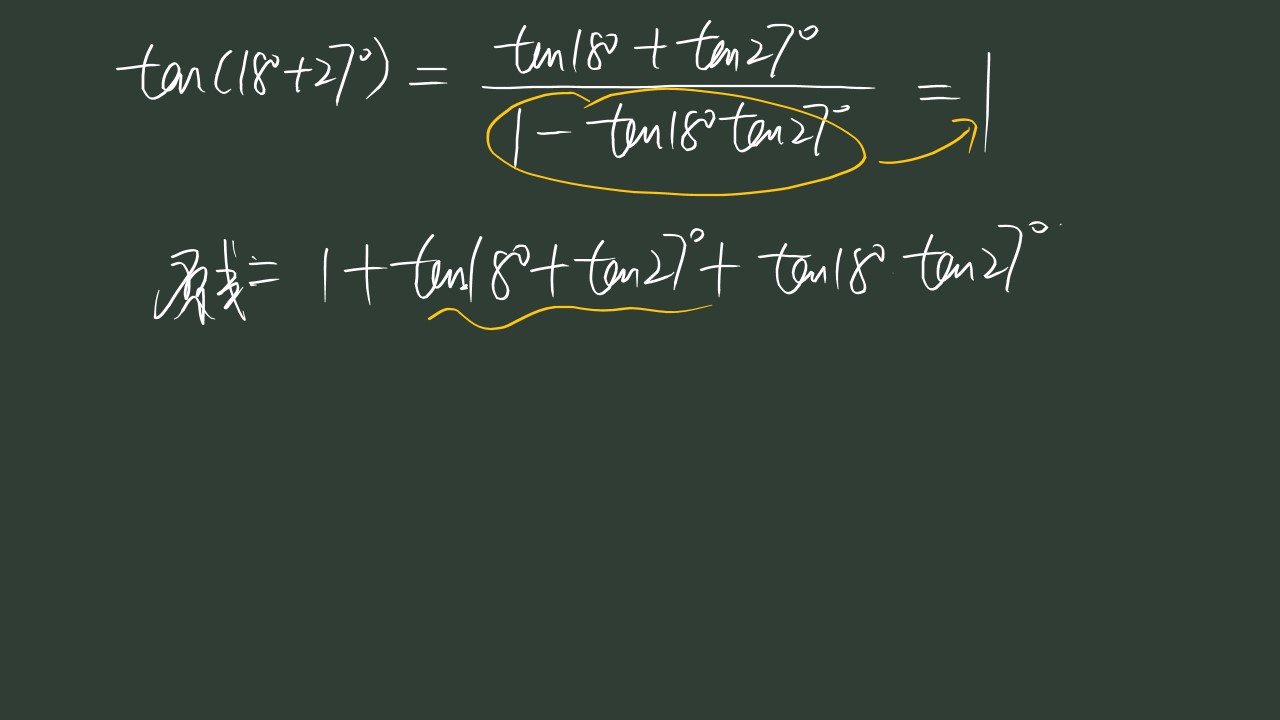 tan(18°+27°) = (tan18° + tan27°)/(1 - tan18°tan27°) = 1
原式= 1 + tan18° + tan27° + tan18° tan27°